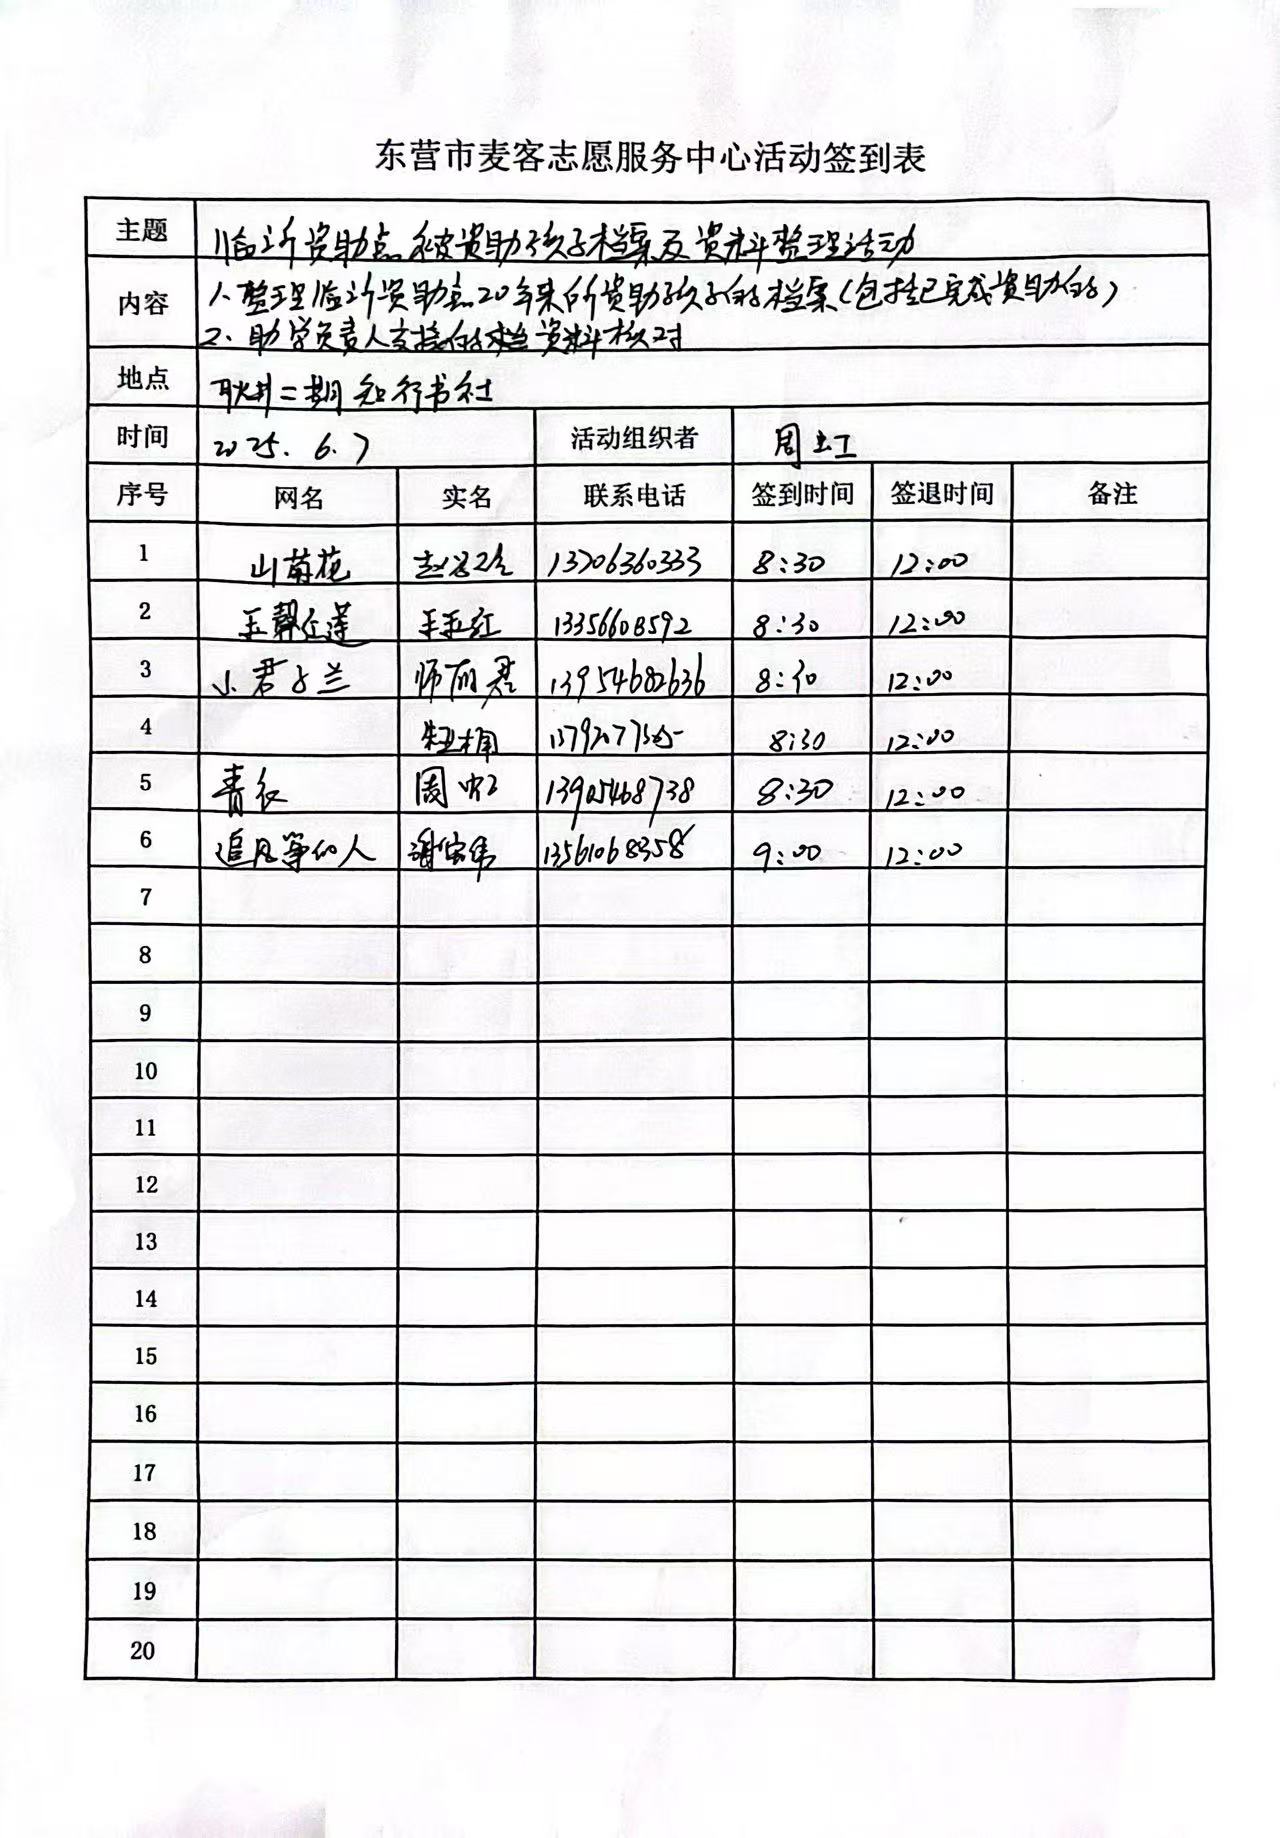 东营市麦客志愿服务中心活动签到表
主题 临沂资助点被资助孩子档案及资料整理活动
内容 1、整理临沂资助点20年来所资助孩子的档案(包括已完成资助的)
2、助学负责人交接的档资料核对
地点 耿井二期知行书社
时间 2025.6.7 活动组织者 周
序号 网名 实名 联系电话 签到时间 签退时间 备注
1 山菊花 赵 13706360333 8:30 12:00
2 王红 8:30 12:00
3 小君子兰 师丽君 13954682636 8:30 12:00
4 8:30 12:00
5 青衣 周 13905468738 8:30 12:00
6 追风筝的人 谢宝伟 13561068358 9:00 12:00
7
8
9
10
11
12
13
14
15
16
17
18
19
20